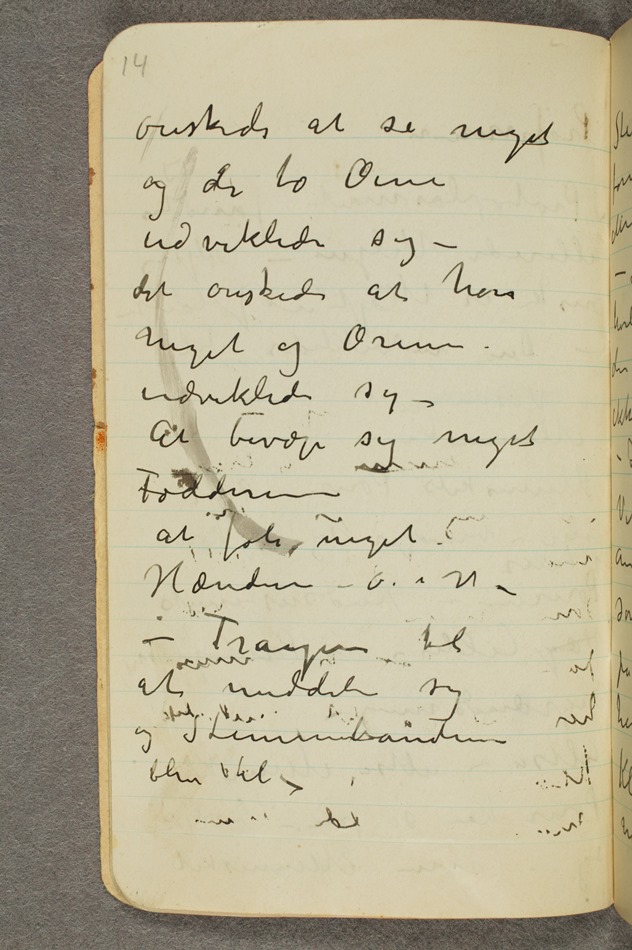 14
ønskede at se meget
og de to Øine
udviklede sig –
det ønskede at høre
meget og Ørene
udviklede sig –
At bevæge sig meget
Fødderne
at føle meget
Hænderne – o. s. v. –
– Trangen til
at meddele sig
og Stemmebåndene
blev til –
til